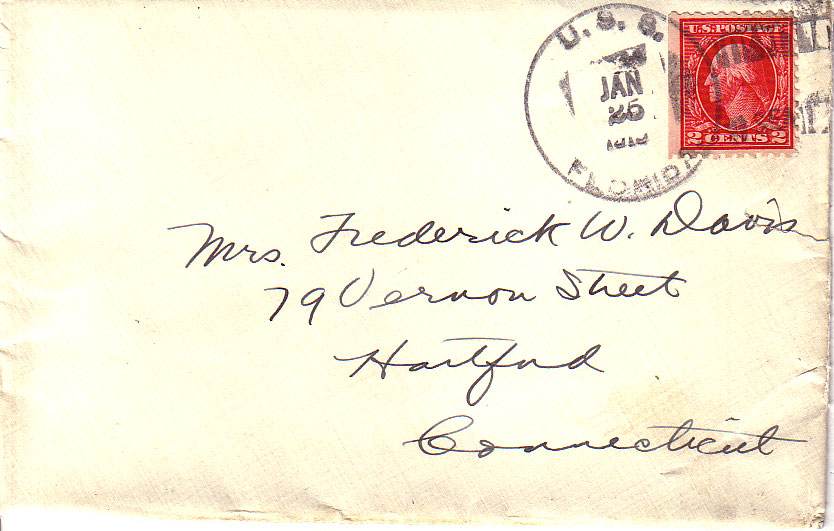 U. S. S.
JAN
25
FLORIDA
U.S. POSTAGE
2 CENTS 2
Mrs. Frederick W. Davis
79 Vernon Street
Hartford
Connecticut